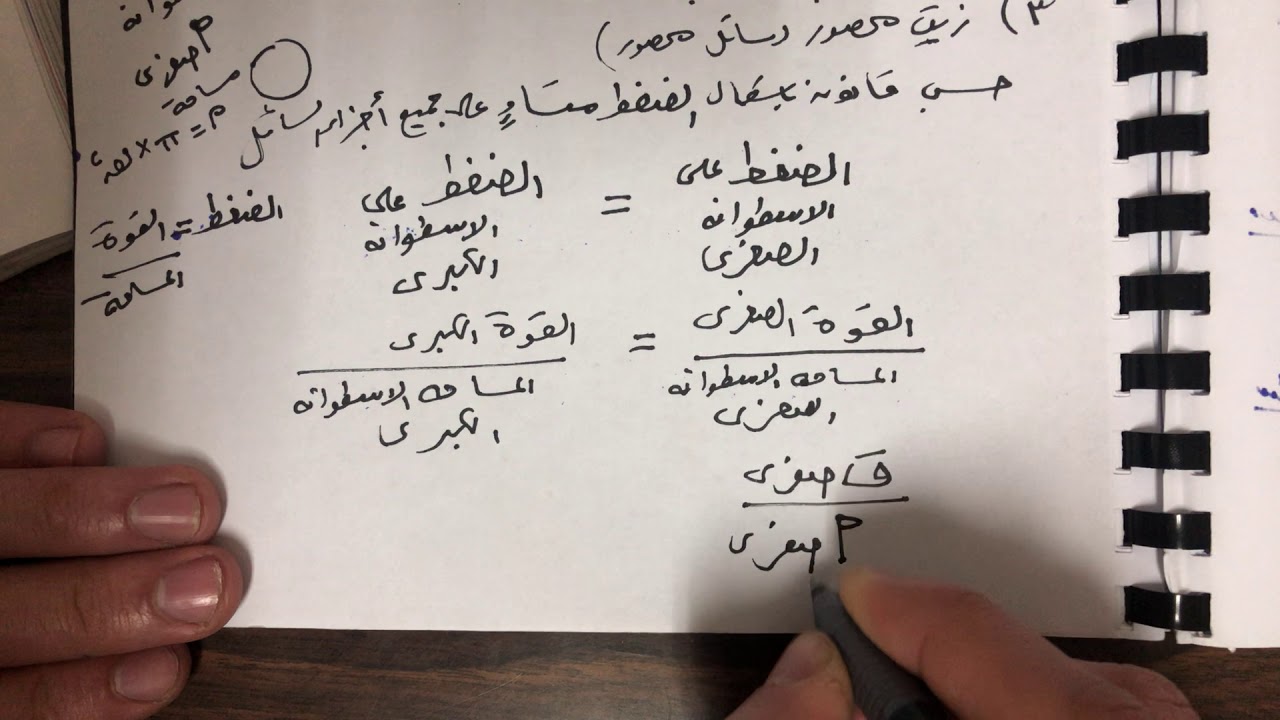 صغرى
٣) زيت محصور (سائل محصور)
مساحة
حسب قانون باسكال الضغط متساوٍ على جميع أجزاء السائل
م = π × نق٢
الضغط على = الضغط على
الاسطوانه الاسطوانه
الصغرى الكبرى
الضغط = القوة
المساحة
القوة الصغرى = القوة الكبرى
المساحه الاسطوانه المساحه الاسطوانه
الصغرى الكبرى
ق صغرى
م صغرى